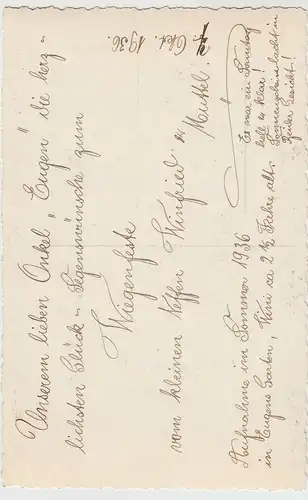 4. Okt. 1936.
Unserem lieben Onkel „Eugen" die herz-
lichsten Glück- u. Segenswünsche zum
Wiegenfeste
vom kleinen Neffen Winfried u. Mutti.
Aufnahme im Sommer 1936
in Eugens Garten, Wini ca 2½ Jahre alt.
Es war ein Sonntag
hell u. klar!
Sonnenschein lacht in
Beider Gesicht!